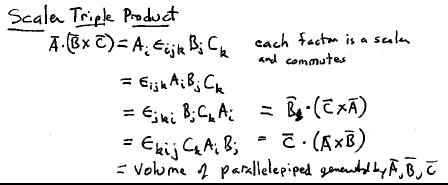 Scaler Triple Product
A̅·(B̅×C̅) = A_i ϵ_ijk B_j C_k each factor is a scaler
and commutes
= ϵ_ijk A_i B_j C_k
= ϵ_jki B_j C_k A_i = B̅·(C̅×A̅)
= ϵ_kij C_k A_i B_j = C̅·(A̅×B̅)
= Volume of parallelepiped generated by A̅, B̅, C̅